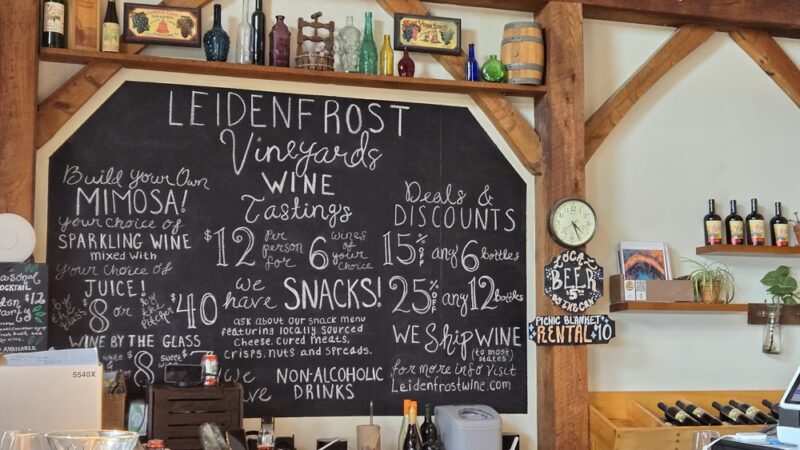 LEIDENFROST
Vineyards
WINE
Tastings
$12 per person for 6 wines of your choice
we have SNACKS!
ask about our snack menu
featuring locally sourced
cheese, cured meats,
crisps, nuts and spreads.
NON-ALCOHOLIC
DRINKS
Build Your Own
MIMOSA!
your choice of
SPARKLING WINE
mixed with
your choice of
JUICE!
$8 or $40
WINE BY THE GLASS
$8
Deals &
DISCOUNTS
15% off any 6 bottles
25% off any 12 bottles
WE Ship WINE
(to most states)
for more info visit
Leidenfrostwine.com
LOCAL
BEER
PICNIC BLANKET
RENTAL $10
COCKTAIL
$12
AVAILABLE
5540X